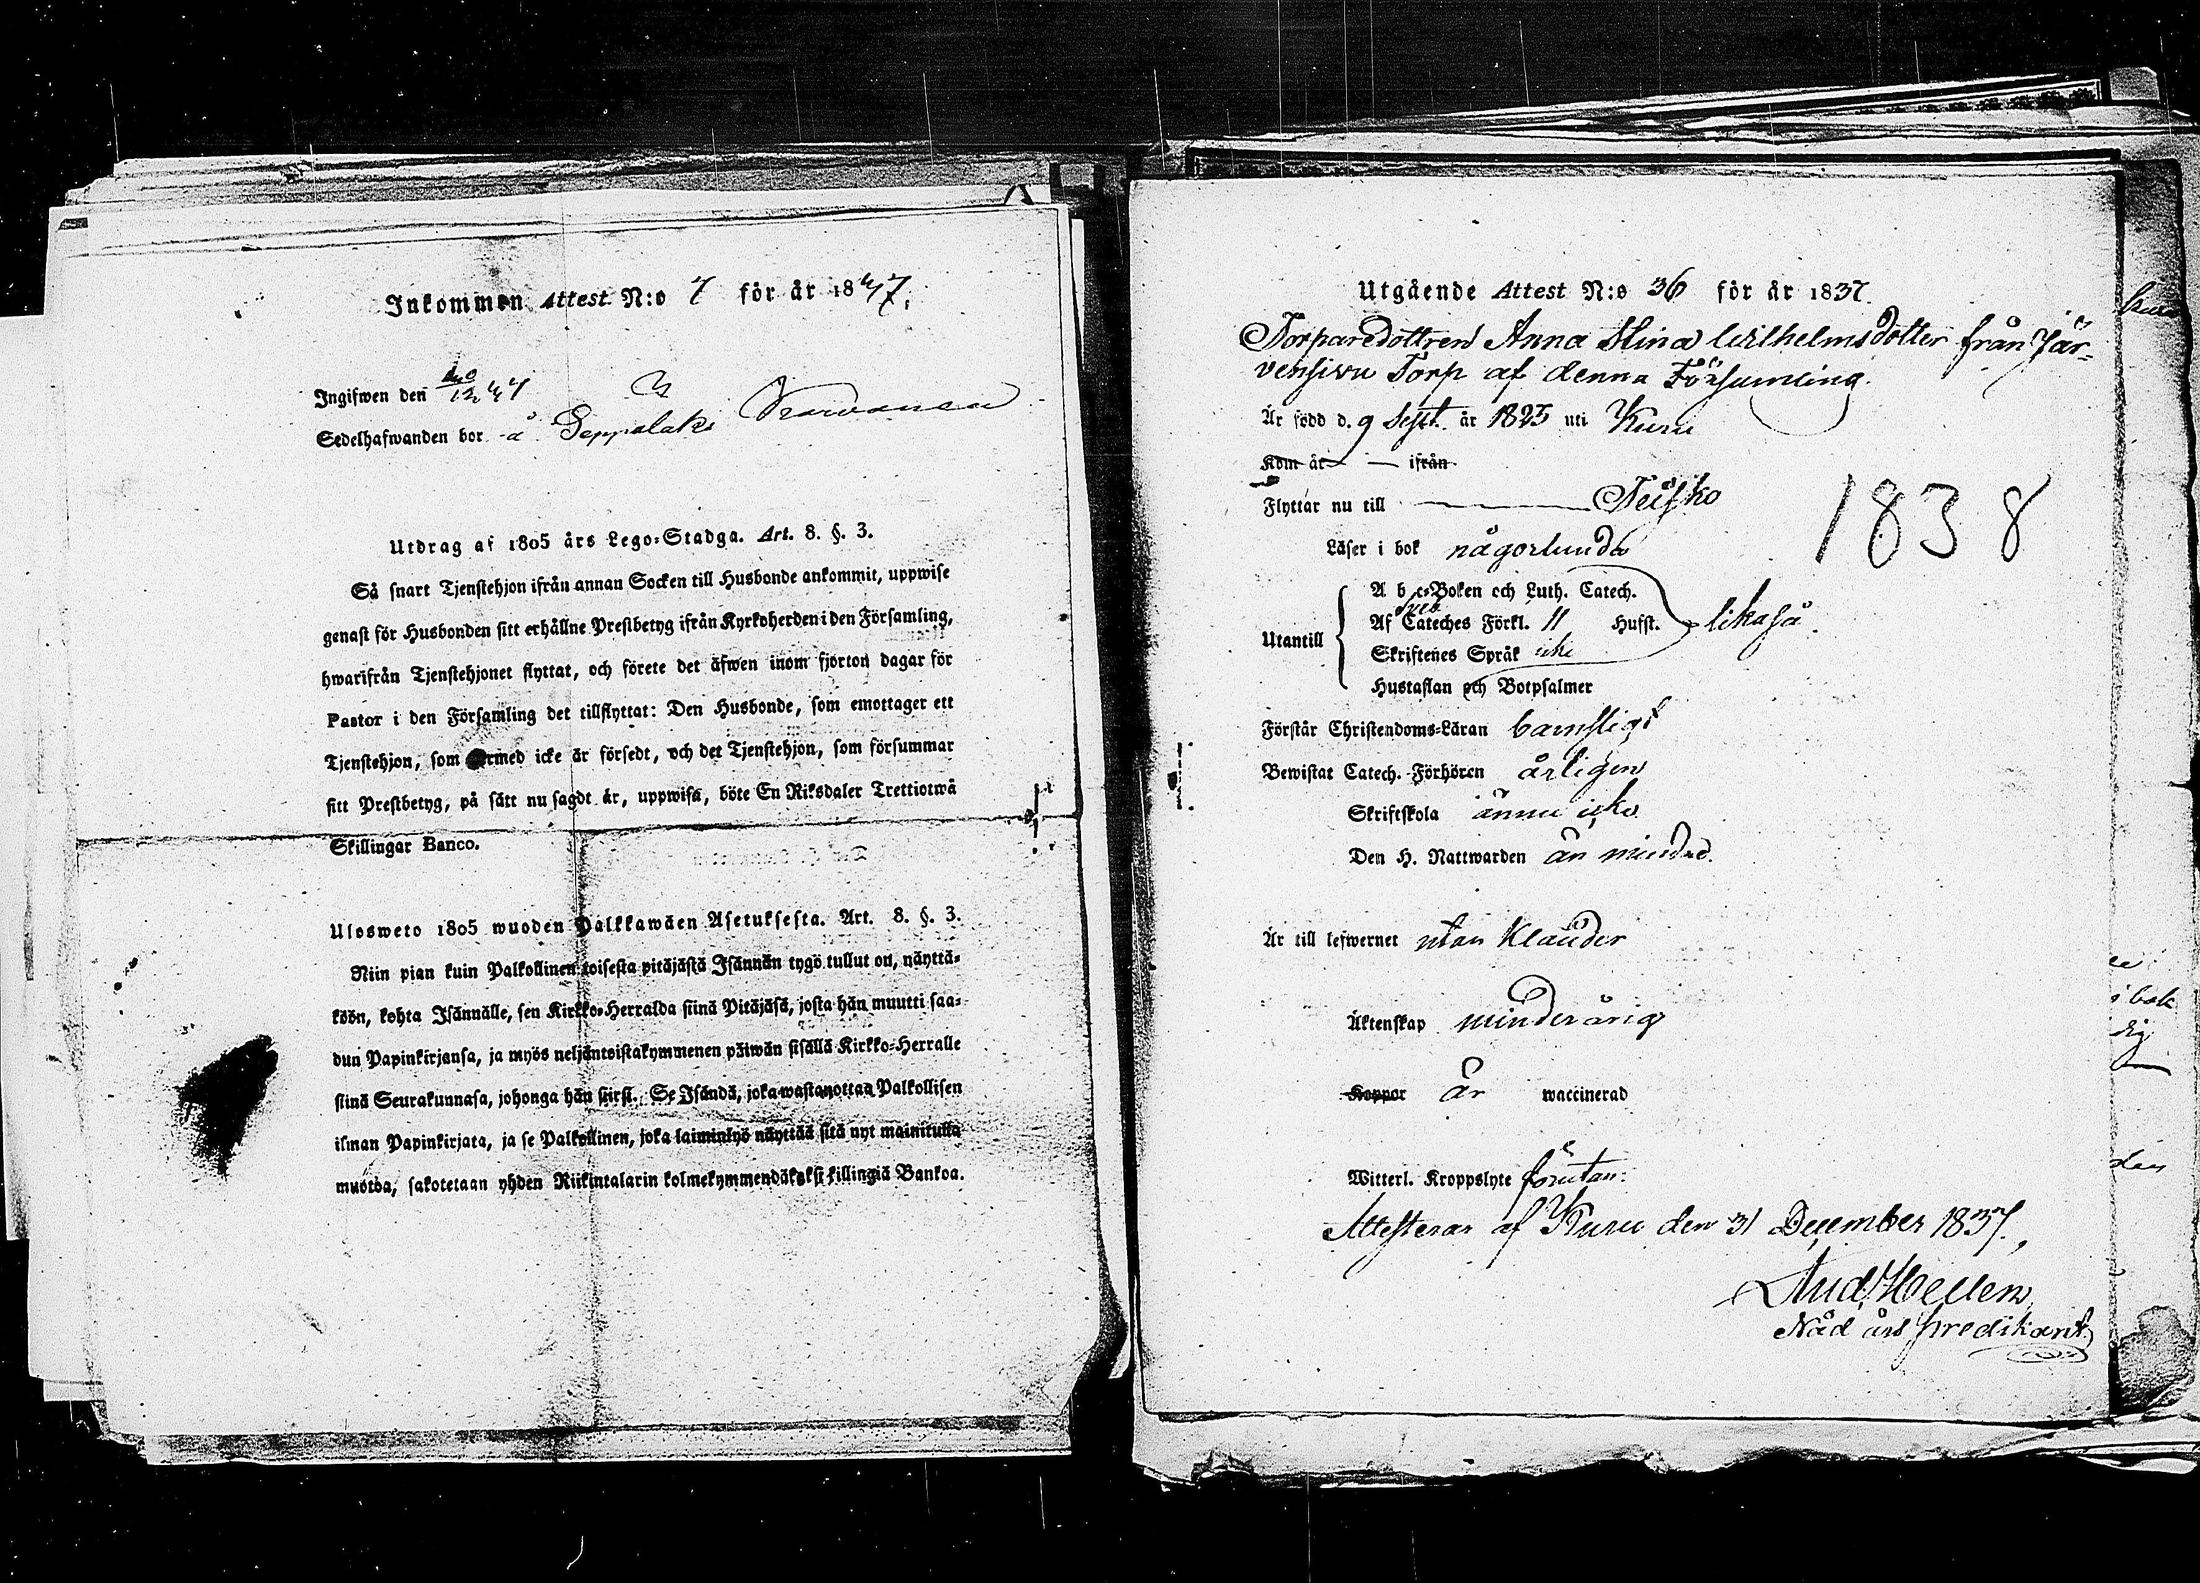 Inkommen Attest N:o 7 för år 1847.
Ingifwen den
Sedelhafwanden bor å Seppälaks
Utdrag af 1805 års Lego-Stadga. Art. 8. §. 3.
Så snart Tjenstehjon ifrån annan Socken till Husbonde ankommit, uppwise
genast för Husbonden sitt erhållne Prestbetyg ifrån Kyrkoherden i den Församling,
hwarifrån Tjenstehjonet flyttat, och förete det äfwen inom fjorton dagar för
Pastor i den Församling det tillflyttat: Den Husbonde, som emottager ett
Tjenstehjon, som ermed icke är försedt, och det Tjenstehjon, som försummar
sitt Prestbetyg, på sätt nu sagdt är, uppwisa, böte En Riksdaler Trettiotwå
Skillingar Banco.
Ulosweto 1805 wuoden Palkkawäen Asetuksesta. Art. 8. §. 3.
Niin pian kuin Palkollinen toisesta pitäjästä Isännän tygö tullut on, näyttä-
köön, kohta Isännälle, sen Kirkko-Herralda siinä Pitäjäsä, josta hän muutti saa-
dun Papinkirjansa, ja myös neljäntoistakymmenen päiwän sisällä Kirkko-Herralle
siinä Seurakunnasa, johonga hän siirsi. Se Isändä, joka wastanottaa Palkollisen
ilman Papinkirjata, ja se Palkollinen, joka laiminlyö näyttää sitä nyt mainitulla
muotoa, sakotetaan yhden Riikintalarin kolmekymmendäkaksi killingiä Bankoa.
Utgående Attest N:o 36 för år 1837.
Torparedottren Anna Stina Wilhelmsdotter från Jär-
vensivu Torp af denna Församling.
Är född d. 9 Sept. år 1825 uti Kuru
Kom år — ifrån
Flyttar nu till Teisko
1838
Läser i bok någorlunda
A b c-Boken och Luth. Catech.
Utantill Af Sveb Cateches Förkl. 11 Hufst. likaså.
Skriftenes Språk icke
Hustaflan och Botpsalmer
Förstår Christendoms-Läran barnsligt
Bewistat Catech. Förhören årligen
Skriftskola ännu icke
Den H. Nattwarden än mindre.
Är till lefwernet utan klander
Äktenskap minderårig
Koppor är waccinerad
Witterl. Kroppslyte förutan:
Attesterar af Kuru den 31 December 1837.
And Hellen
Nåd års predikant